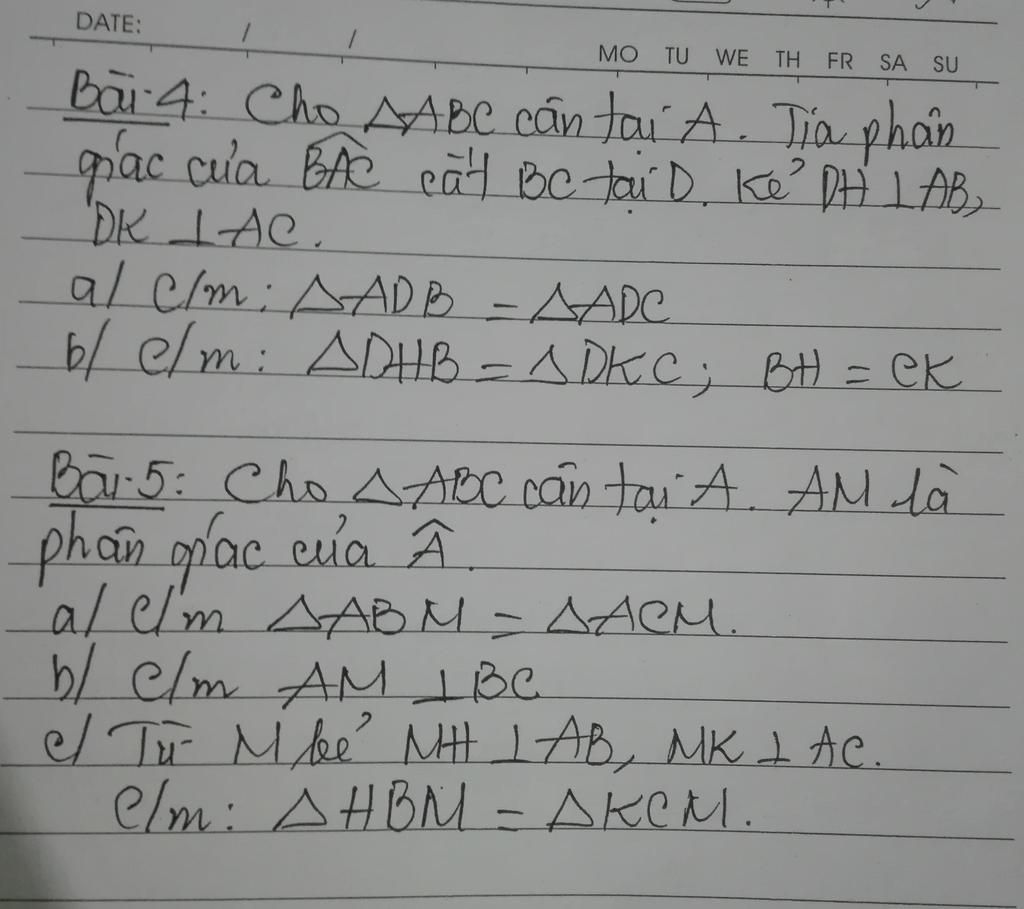 DATE: / /
MO TU WE TH FR SA SU
Bài 4: Cho △ABC cân tại A. Tia phân
giác của \widehat{BAC} cắt BC tại D. Kẻ DH ⊥ AB,
DK ⊥ AC.
a/ C/m: △ADB = △ADC
b/ C/m: △DHB = △DKC; BH = CK
Bài 5: Cho △ABC cân tại A. AM là
phân giác của Â.
a/ C/m △ABM = △ACM.
b/ C/m AM ⊥ BC
c/ Từ M kẻ MH ⊥ AB, MK ⊥ AC.
C/m: △HBM = △KCM.